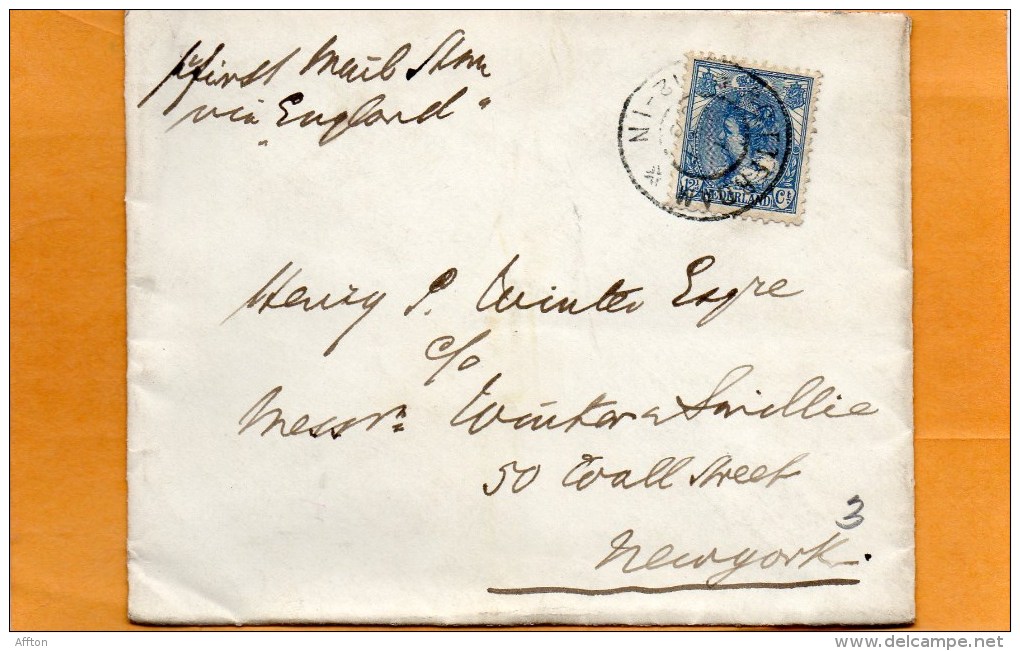 p first Mail Stmr
via "England"
12½ Ct
NEDERLAND
Henry P. Winter Esqre
c/o
Messrs Winter & Smillie
50 Wall Street
New york
3
Affton
www.delcampe.net